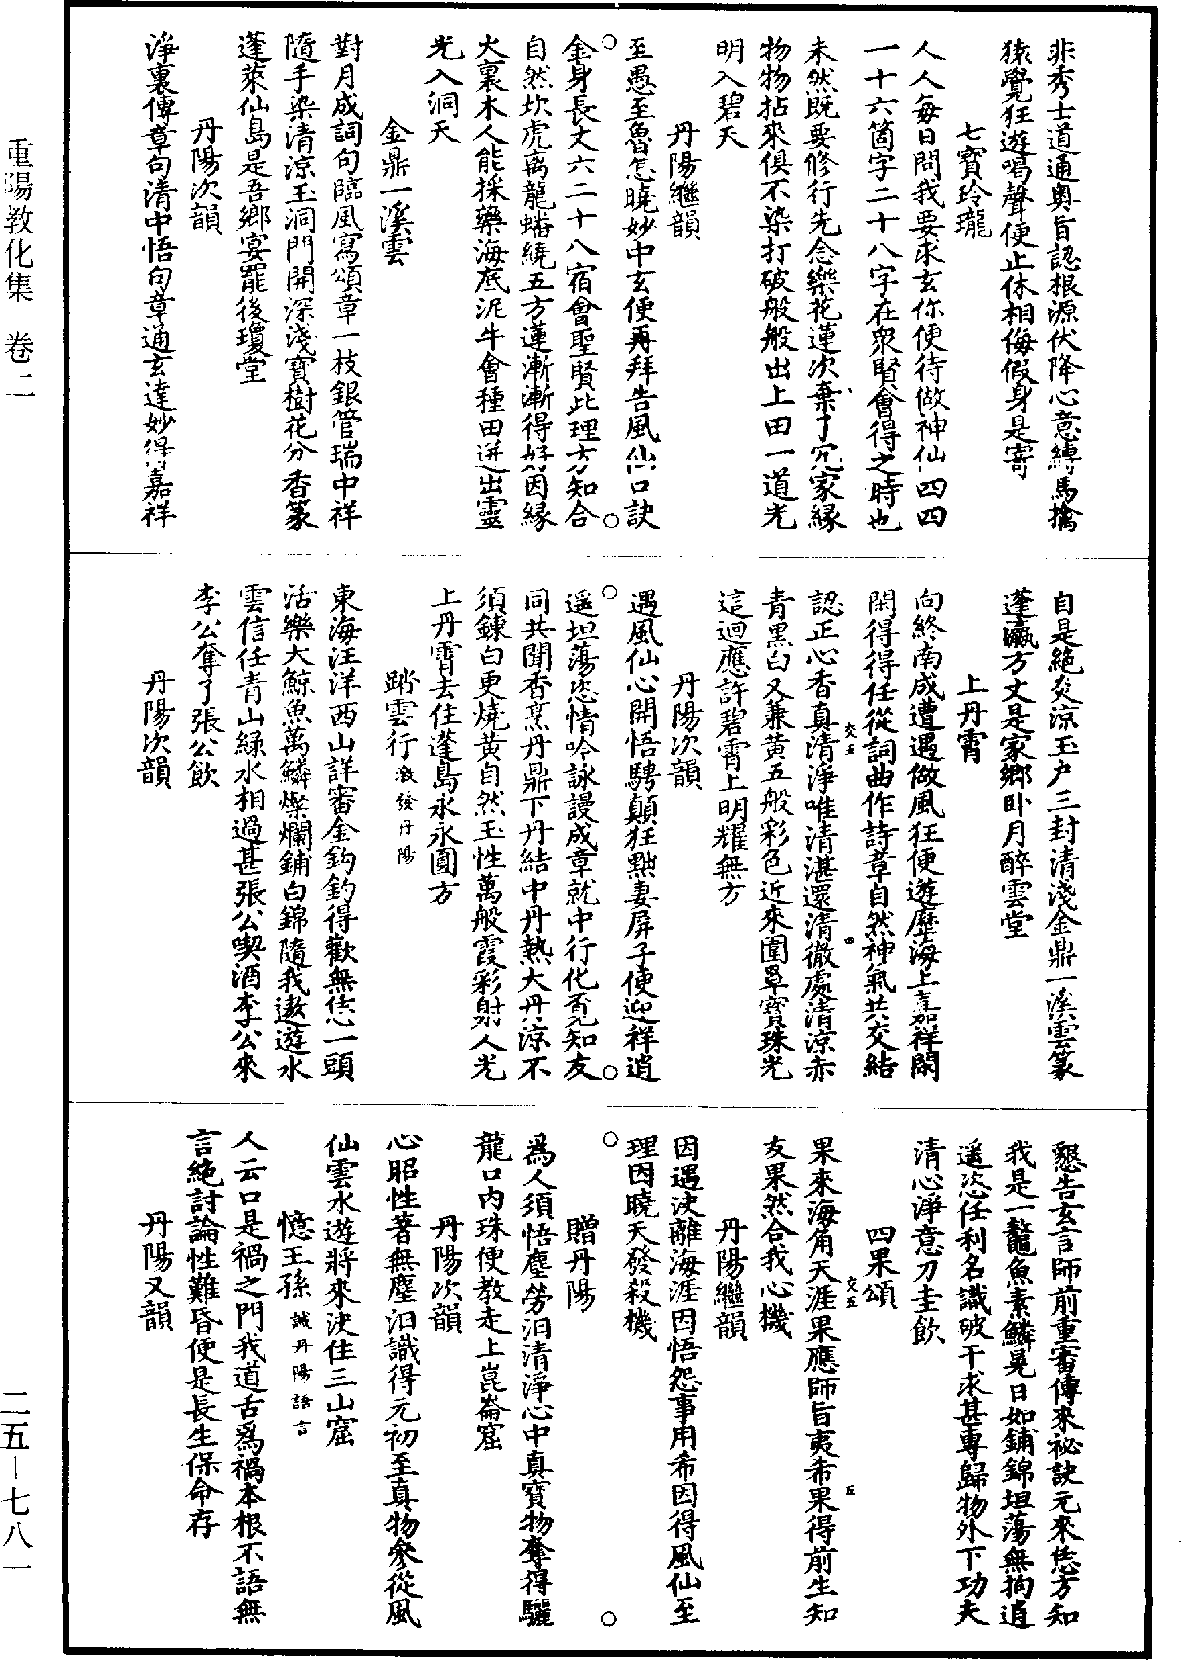 重陽教化集　卷二
非秀士道通奧旨認根源伏降心意縛馬擒
猿覺狂遊喝聲便止休相侮假身是寄
七寶玲瓏
人人每日問我要求玄你便待做神仙四四
一十六箇字二十八字在衆賢會得之時也
未然既要修行先念樂花蓮次棄了冤家緣
物物拈來俱不染打破般般出上田一道光
明入碧天
丹陽繼韻
至愚至魯怎曉妙中玄便再拜告風仙口訣
金身長丈六二十八宿會聖賢此理方知合
自然坎虎离龍蟠繞五方蓮漸漸得好因緣
火裏木人能採藥海底泥牛會種田迸出靈
光入洞天
金鼎一溪雲
對月成詞句臨風寫頌章一枝銀管瑞中祥
隨手染清涼玉洞門開深淺寶樹花分香篆
蓬萊仙島是吾鄉宴罷後瓊堂
丹陽次韻
淨裏傳章句清中悟句章通玄達妙得嘉祥
自是絕炎涼玉户三封清淺金鼎一溪雲篆
蓬瀛方丈是家鄉卧月醉雲堂
上丹霄
向終南成遭遇做風狂便遊歷海上嘉祥閑
閑得得任從詞曲作詩章自然神氣共交結
認正心香真清淨唯清湛還清徹處清涼赤
青黑白又兼黄五般彩色近來圍罩寶珠光
這迴應許碧霄上明耀無方
丹陽次韻
遇風仙心開悟騁顛狂㸃妻屏子便迎祥逍
遥坦蕩恣情吟詠謾成章就中行化覓知友
同共聞香烹丹鼎下丹結中丹熱大丹涼不
須鍊白更燒黄自然玉性萬般霞彩射人光
上丹霄去住蓬島永永圓方
踏雲行激發丹陽
東海汪洋西山詳審金鈎釣得歡無恁一頭
活樂大鯨魚萬鱗燦爛鋪白錦隨我遨遊水
雲信任青山緑水相過甚張公喫酒李公來
李公奪了張公飲
丹陽次韻
懇告玄言師前重審傳來祕訣元來恁方知
我是一鼇魚素鱗晃日如鋪錦坦蕩無拘逍
遥恣任利名識破干求甚專歸物外下功夫
清心淨意刀圭飲
四果頌
果來海角天涯果應師旨夷希果得前生知
友果然合我心機
丹陽繼韻
因遇決離海涯因悟怨事用希因得風仙至
理因曉天發殺機
贈丹陽
為人須悟塵勞汩清淨心中真寶物奪得驪
龍口内珠便教走上崑崙窟
丹陽次韻
心昭性著無塵汩識得元初至真物叅從風
仙雲水遊將來決住三山窟
憶王孫誡丹陽語言
人云口是禍之門我道舌為禍本根不語無
言絕討論性難昏便是長生保命存
丹陽又韻
二五—七八一